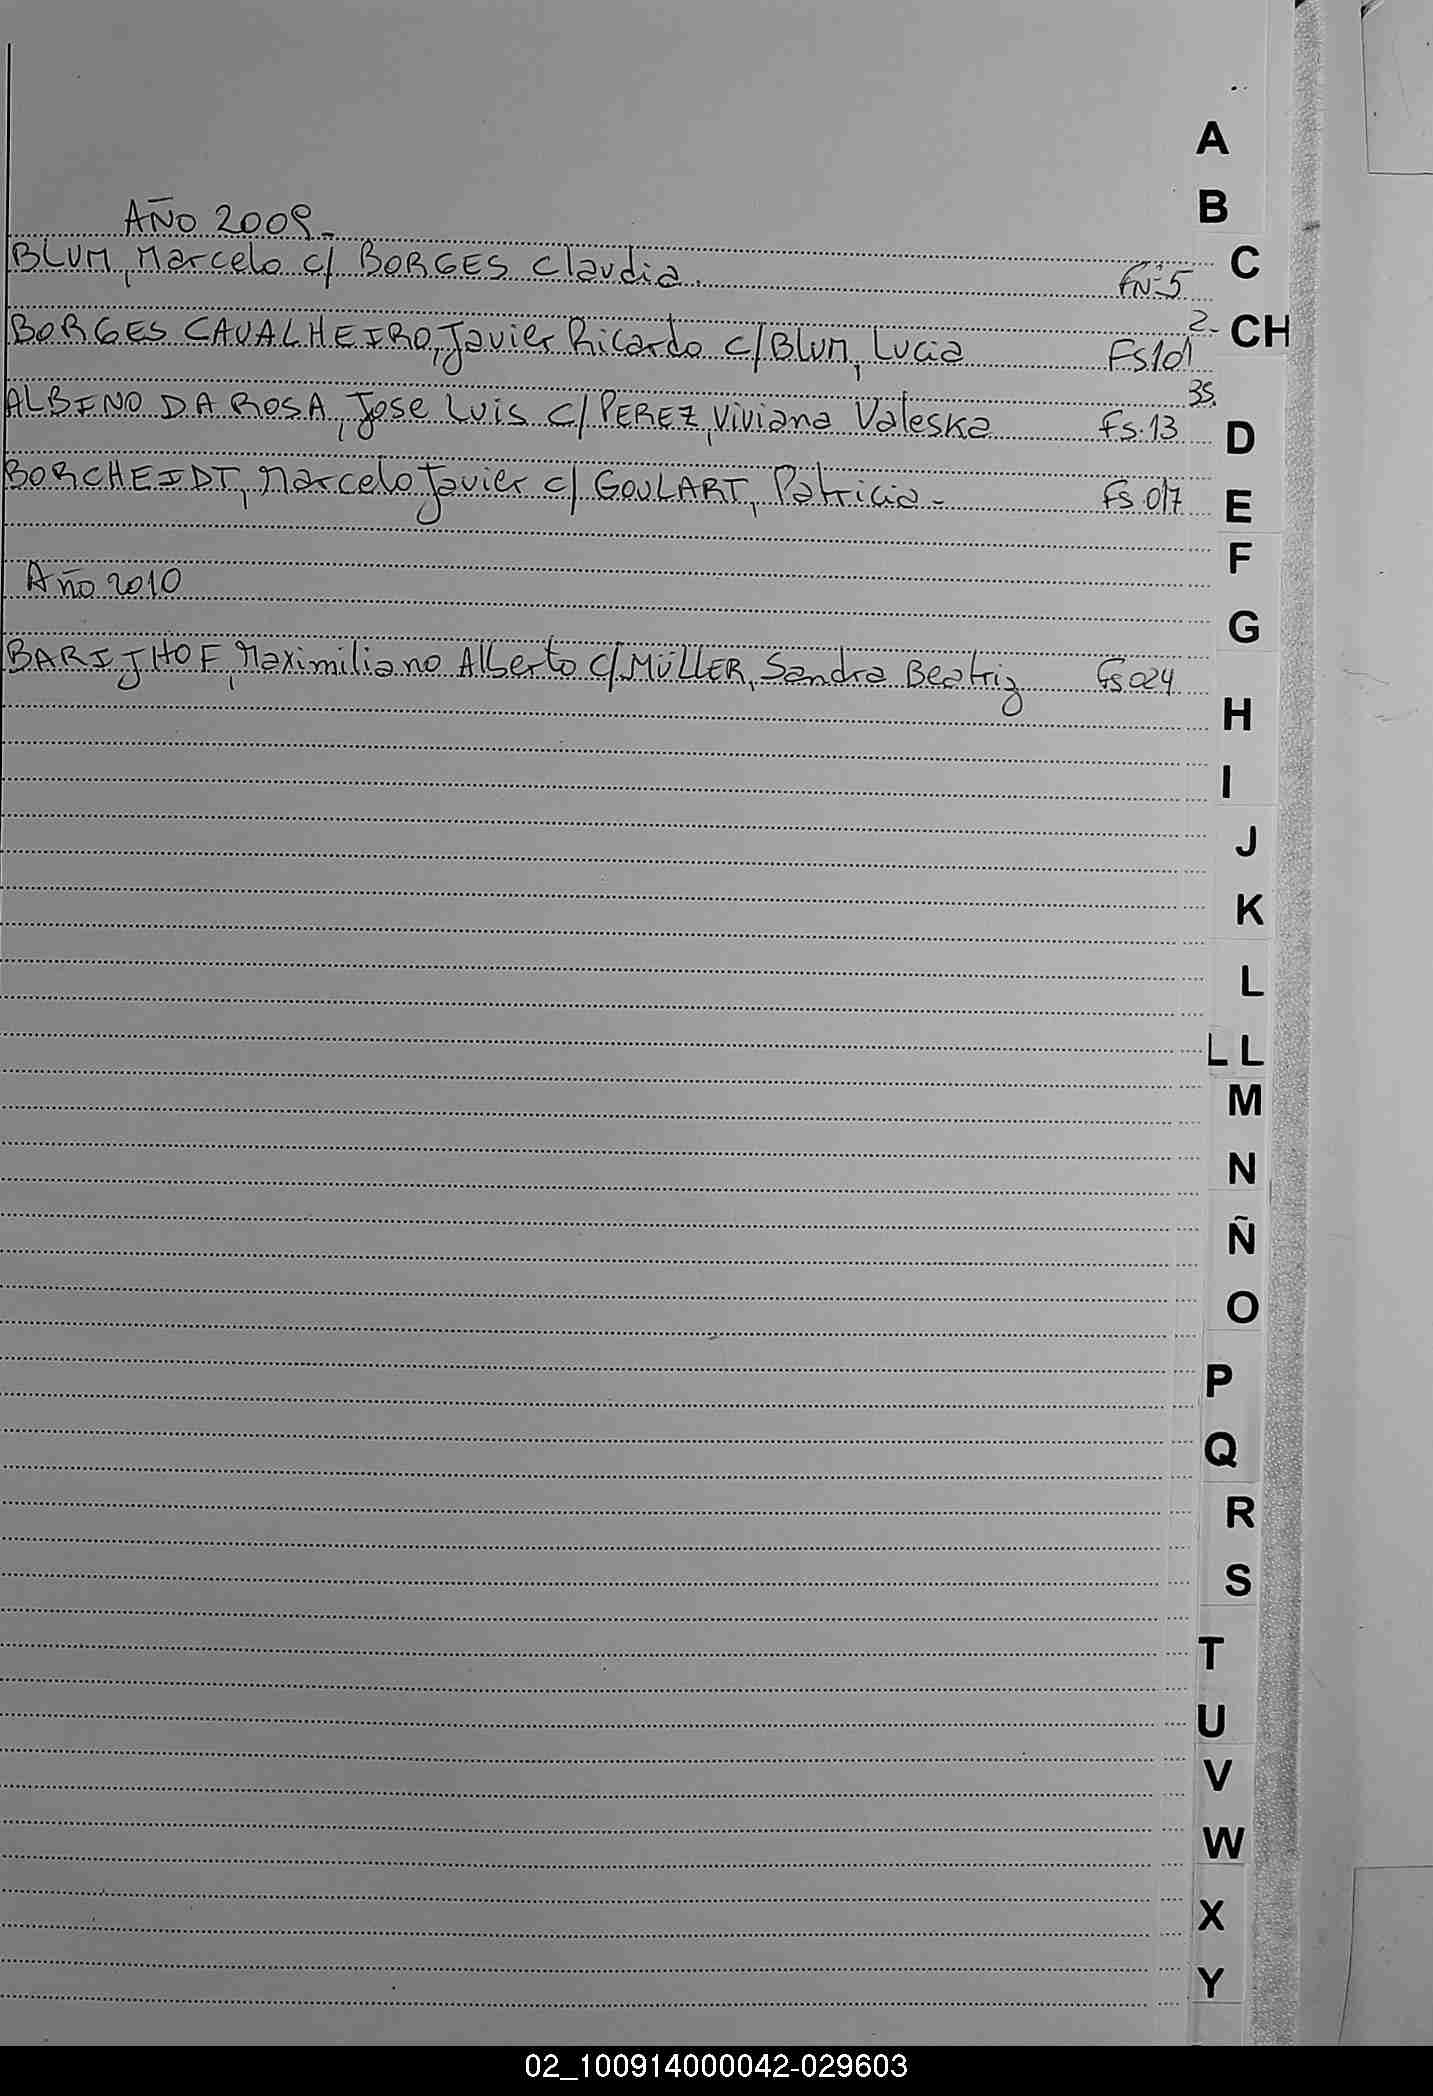 AÑO 2009-
BLUM, Marcelo c/ BORGES Claudia. FN:5
BORGES CAVALHEIRO, Javier Ricardo c/ BLUM, Lucia Fs 101
2-
ALBINO DA ROSA, Jose Luis c/ PEREZ, Viviana Valeska Fs.13
35.
BORCHEIDT, Marcelo Javier c/ GOULART, Patricia- Fs 017
Año 2010
BARIJHOF, Maximiliano Alberto c/ MÜLLER, Sandra Beatriz Fs 024
A
B
C
CH
D
E
F
G
H
I
J
K
L
LL
M
N
Ñ
O
P
Q
R
S
T
U
V
W
X
Y
02_100914000042-029603